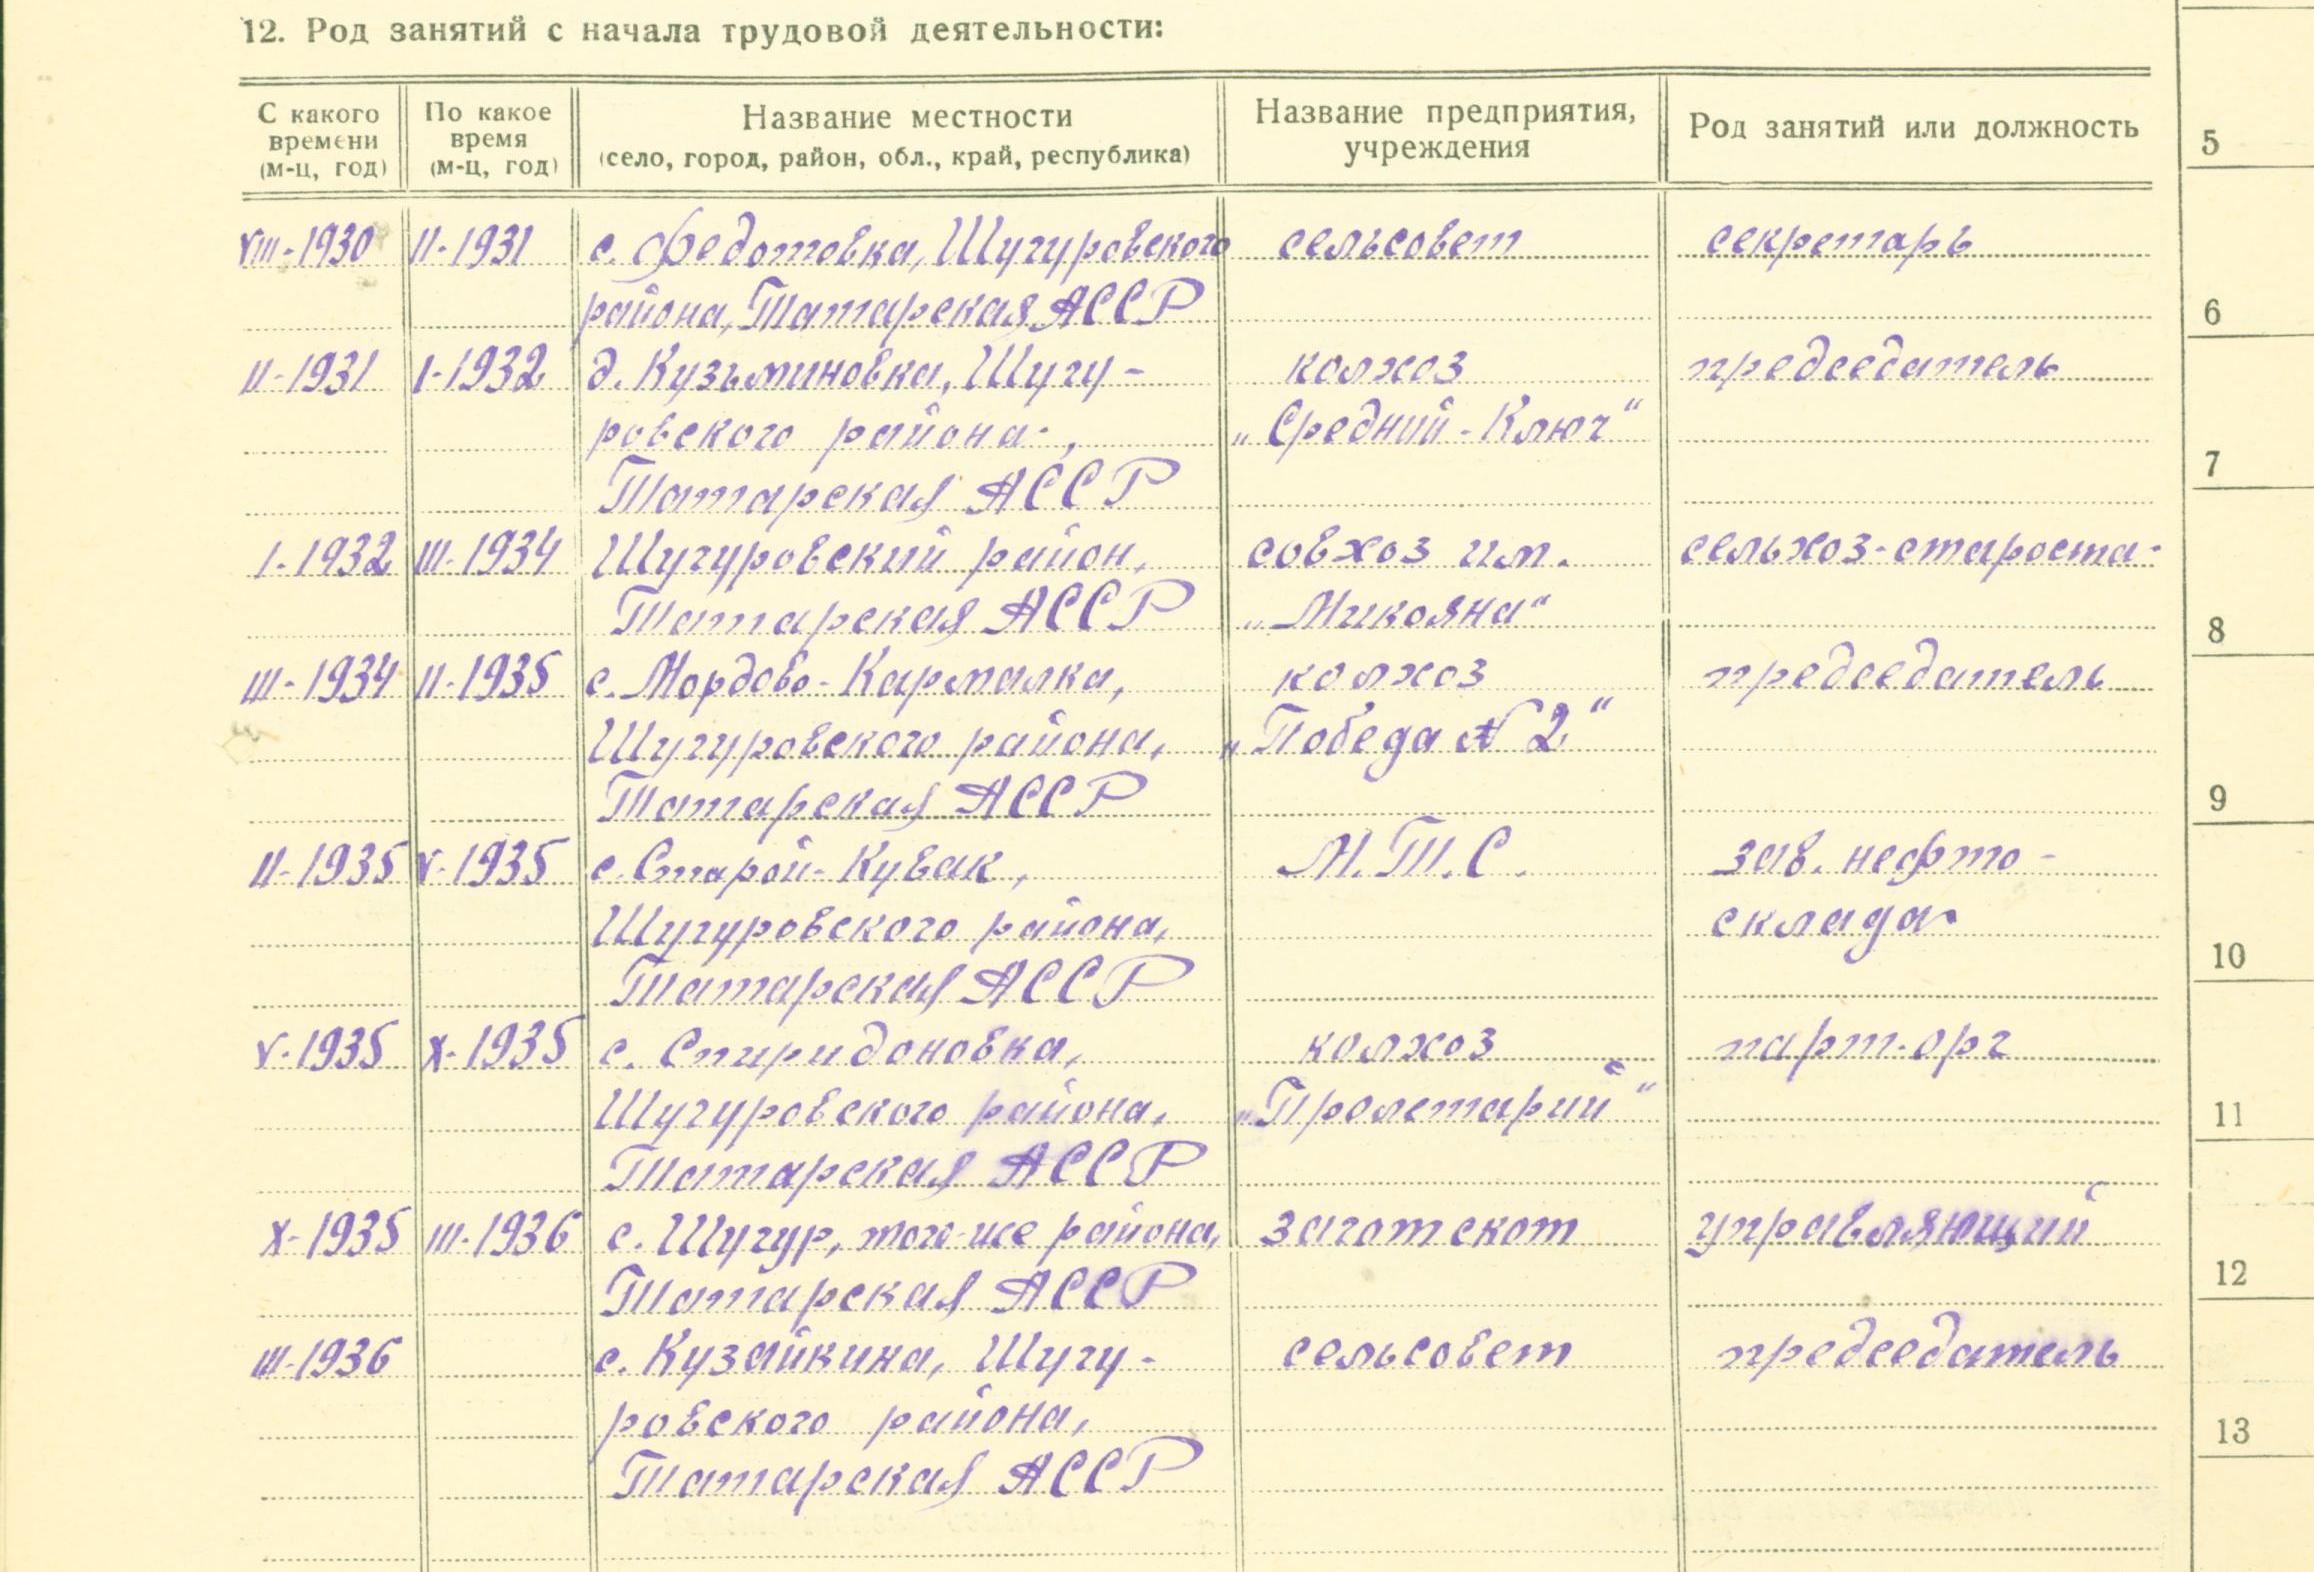 12. Род занятий с начала трудовой деятельности:
С какого времени (м-ц, год) По какое время (м-ц, год) Название местности (село, город, район, обл., край, республика) Название предприятия, учреждения Род занятий или должность
5
VIII-1930 II-1931 с. Федотовка, Шугуровского сельсовет секретарь
района, Татарская АССР
6
II-1931 I-1932 д. Кузьминовка, Шугу- колхоз председатель
ровского района, „Средний-Ключ“
7
Татарская АССР
I-1932 III-1934 Шугуровский район, совхоз им. сельхоз-староста
Татарская АССР „Микояна“
8
III-1934 II-1935 с. Мордово-Кармалка, колхоз председатель
Шугуровского района, „Победа № 2“
Татарская АССР
9
II-1935 V-1935 с. Старой-Кувак, М.Т.С. зав. нефто-
Шугуровского района, склада
10
Татарская АССР
V-1935 X-1935 с. Спиридоновка, колхоз парт-орг
Шугуровского района, „Пролетарий“
11
Татарская АССР
X-1935 III-1936 с. Шугур, того-же района, заготскот управляющий
12
Татарская АССР
III-1936 с. Кузайкина, Шугу- сельсовет председатель
ровского района,
13
Татарская АССР